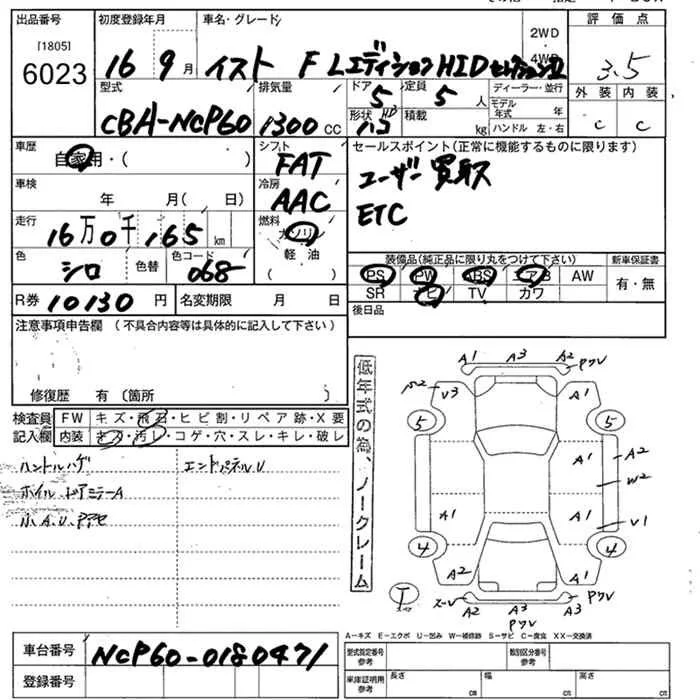 出品番号 初度登録年月 車名・グレード 2WD・4WD 評価点
[1805]
6023 16 9月 イスト F Lエディション HID セレクションII 3.5
型式 排気量 ドア 定員 ディーラー・並行 外装 内装
CBA-NCP60 1300cc 5 5人 モデル年式 年 C C
形状 HB 積載 kg ハンドル 左・右
車歴 自家用・( ) シフト FAT セールスポイント(正常に機能するものに限ります)
ユーザー買取
車検 年 月( 日) 冷房 AAC ETC
走行 16万0千165km 燃料 ガソリン 軽油
色 シロ 色替 色コード 068 装備品(純正品に限り丸をつけて下さい) 新車保証書
PS PW ABS エアB AW 有・無
SR ナビ TV カワ
R券 10130円 名変期限 月 日 後日品
注意事項申告欄(不具合内容等は具体的に記入して下さい)
修復歴 有(箇所 )
検査員記入欄 FW キズ・飛石・ヒビ割・リペア跡・X要
内装 キズ・汚レ・コゲ・穴・スレ・キレ・破レ
ハンドルハゲ エンドパネルU
ホイル ドアミラーA
低年式の為、ノークレーム
A1 A3 A2 PクV
V3 A1
5 5
A1 A2
W2
A1 A1 U1
4 4
A2 A1
A2 A3 A3 PクV
PクV
A-キズ E-エクボ U-凹み W-補修跡 S-サビ C-腐食 XX-交換済
車台番号 NCP60-0180471
型式指定番号 参考 類別区分番号 参考
登録番号 車庫証明用 参考 長さ cm 幅 cm 高さ cm